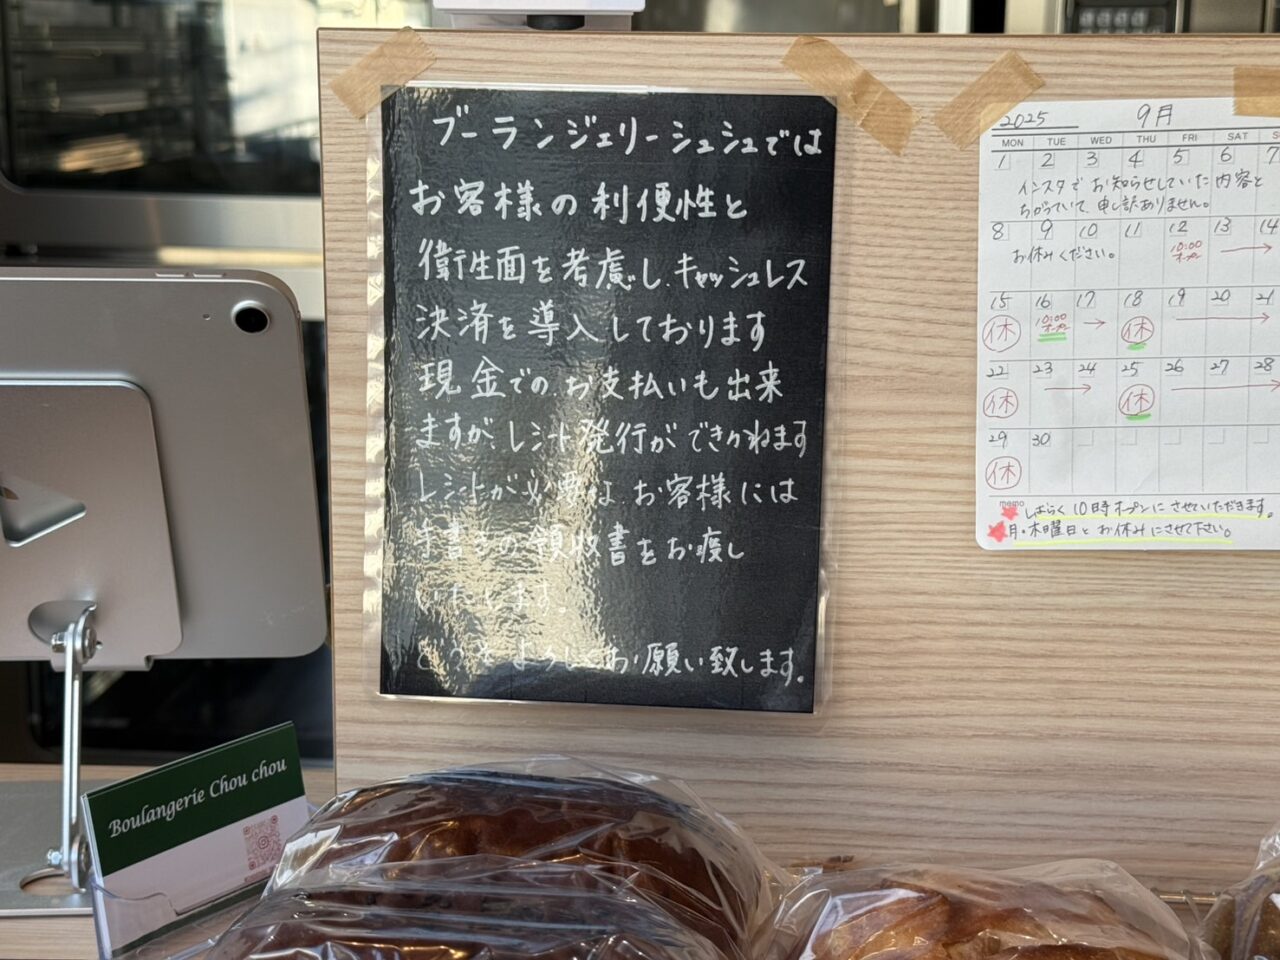 ブーランジェリーシュシュでは
お客様の利便性と
衛生面を考慮し、キャッシュレス
決済を導入しております
現金でのお支払いも出来
ますが、レシート発行ができかねます
レシートが必要なお客様には
手書きの領収書をお渡し
いたします。
どうぞよろしくお願い致します。
2025 9月
MON TUE WED THU FRI SAT
1 2 3 4 5 6 7
インスタでお知らせしていた内容と
ちがっていて、申し訳ありません。
8 9 10 11 12 13 14
お休みください。
10:00
オープン
15 16 17 18 19 20 21
休 10:00 休
オープン
22 23 24 25 26 27 28
休 休
29 30
休
memo
しばらく10時オープンにさせていただきます。
月・木曜日とお休みにさせて下さい。
Boulangerie Chou chou